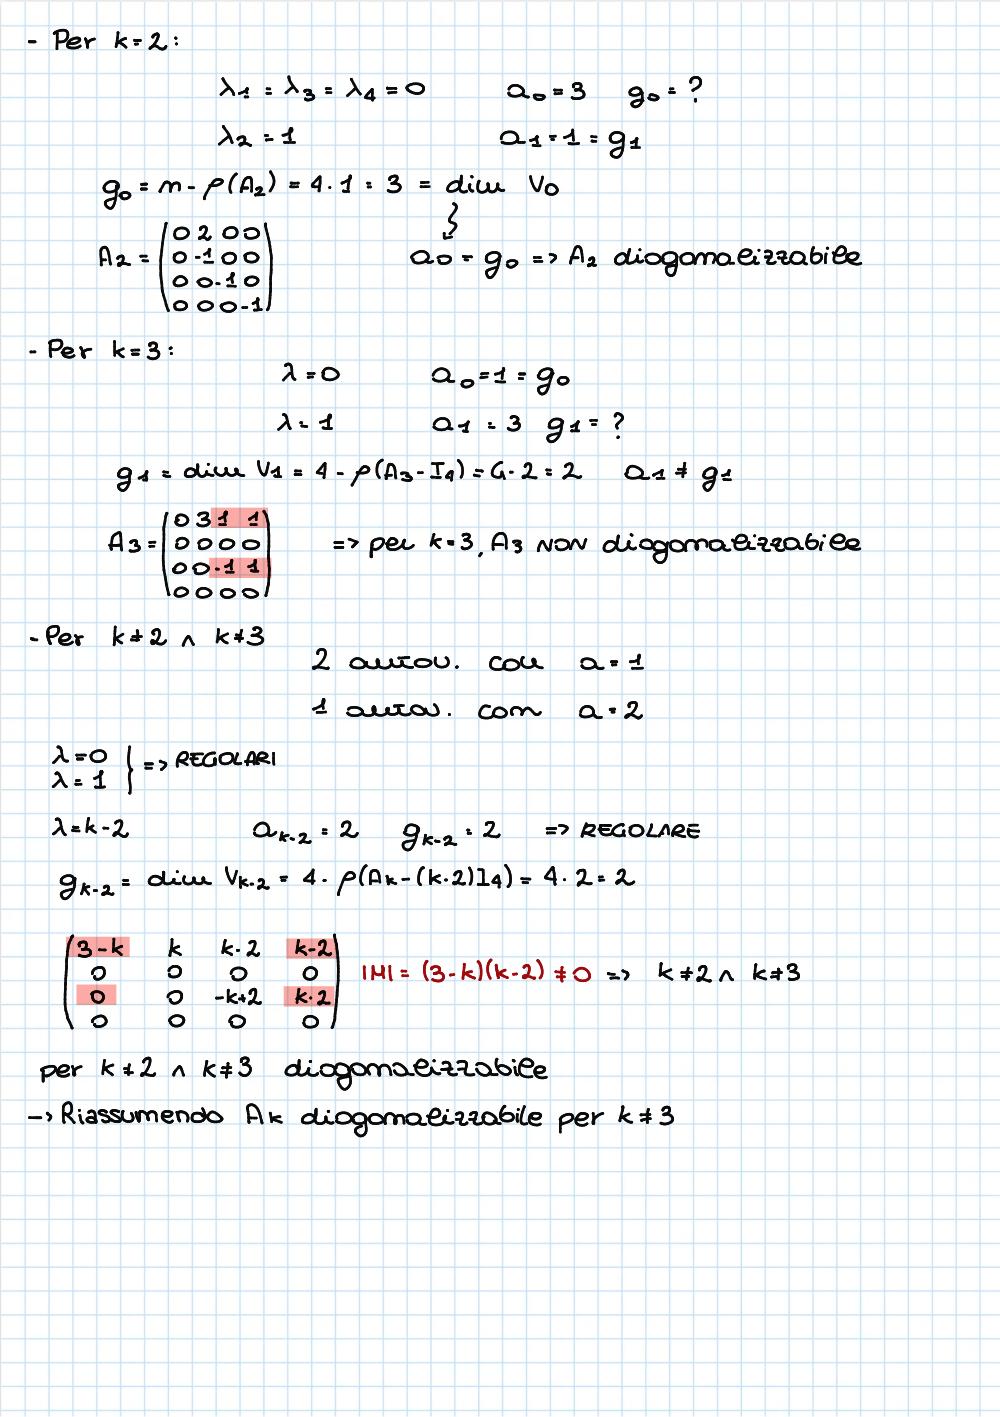 - Per k=2:
λ1 = λ3 = λ4 = 0 a0 = 3 g0 = ?
λ2 = 1 a1 = 1 = g1
g0 = n - ρ(A2) = 4 - 1 = 3 = dim V0
A2 = (0 2 0 0
0 -1 0 0
0 0 -1 0
0 0 0 -1)
a0 = g0 => A2 diagonalizzabile
- Per k=3:
λ = 0 a0 = 1 = g0
λ = 1 a1 = 3 g1 = ?
g1 = dim V1 = 4 - ρ(A3 - I4) = 4 - 2 = 2 a1 ≠ g1
A3 = (0 3 1 1
0 0 0 0
0 0 -1 1
0 0 0 0)
=> per k=3, A3 NON diagonalizzabile
- Per k≠2 ∧ k≠3
2 autov. con a = 1
1 autov. con a = 2
λ = 0
λ = 1 } => REGOLARI
λ = k-2 ak-2 = 2 gk-2 = 2 => REGOLARE
gk-2 = dim Vk-2 = 4 - ρ(Ak - (k-2)I4) = 4 - 2 = 2
(3-k k k-2 k-2
0 0 0 0
0 0 -k+2 k-2
0 0 0 0)
|M| = (3-k)(k-2) ≠ 0 => k≠2 ∧ k≠3
per k≠2 ∧ k≠3 diagonalizzabile
-> Riassumendo Ak diagonalizzabile per k≠3